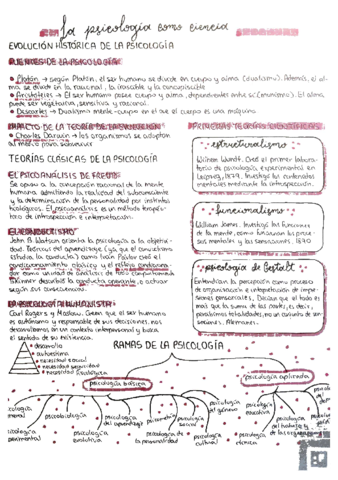 La psicología como ciencia
EVOLUCIÓN HISTÓRICA DE LA PSICOLOGÍA
FUENTES DE LA PSICOLOGÍA
• Platón → según Platón, el ser humano se divide en cuerpo y alma (dualismo). Además, el al-
ma se divide en la racional, la irascible y la concupiscible
• Aristóteles → El ser humano posee cuerpo y alma, dependientes entre sí (monismo). El alma
puede ser vegetativa, sensitiva y racional.
• Descartes → Dualismo mente-cuerpo en el que el cuerpo es una máquina
IMPACTO DE LA TEORÍA DE LA EVOLUCIÓN
• Charles Darwin → los organismos se adaptan
al medio para sobrevivir
TEORÍAS CLÁSICAS DE LA PSICOLOGÍA
EL PSICOANÁLISIS DE FREUD
Se opone a la concepción racional de la mente
humana, admitiendo la realidad del subconsciente
y la determinación de la personalidad por instintos
biológicos. El psicoanálisis es un método terapéu-
tico de introspección e interpretación.
EL CONDUCTISMO
John B Watson orienta la psicología a la objetivi-
dad. Teorías del aprendizaje (ya que el conductismo
estudia la conducta) como Iván Pavlov con el
condicionamiento clásico y el estímulo condicionado
como unidad de análisis de todo comportamiento
Skinner describió la conducta operante, o actuar
según sus consecuencias.
LA PSICOLOGÍA HUMANISTA
Carl Rogers y Maslow. Creen que el ser humano
es autónomo y responsable de sus decisiones, nos
desarrollamos en un contexto interpersonal y busca
el sentido de su existencia.
• desarrollo
• autoestima
• necesidad social
• necesidad seguridad
• necesidad fisiológica
PRIMERAS TEORÍAS CIENTÍFICAS
estructuralismo
Wilhem Wundt. Creó el primer labora-
torio de psicología experimental en
Leipzig, 1879. Investigó los contenidos
mentales mediante la introspección.
funcionalismo
William James. Investigó las funciones
de la mente, como funcionan los proce-
sos mentales y las sensaciones. 1890
psicología de Gestalt
Entendían la percepción como proceso
de organización e interpretación de impre-
siones sensoriales. Decían que el todo es
más que la suma de las partes, es decir,
percibimos totalidades, no un conjunto de sen-
saciones. Alemanes.
RAMAS DE LA PSICOLOGÍA
psicología básica
psicología aplicada
psicobiología
psicología
evolutiva
psicología
del aprendizaje
psicología de
la personalidad
psicometría
psicología
social
psicología
cultural
psicología
del género
psicología
educativa
psicología
clínica
psicología
del trabajo y
de la organización